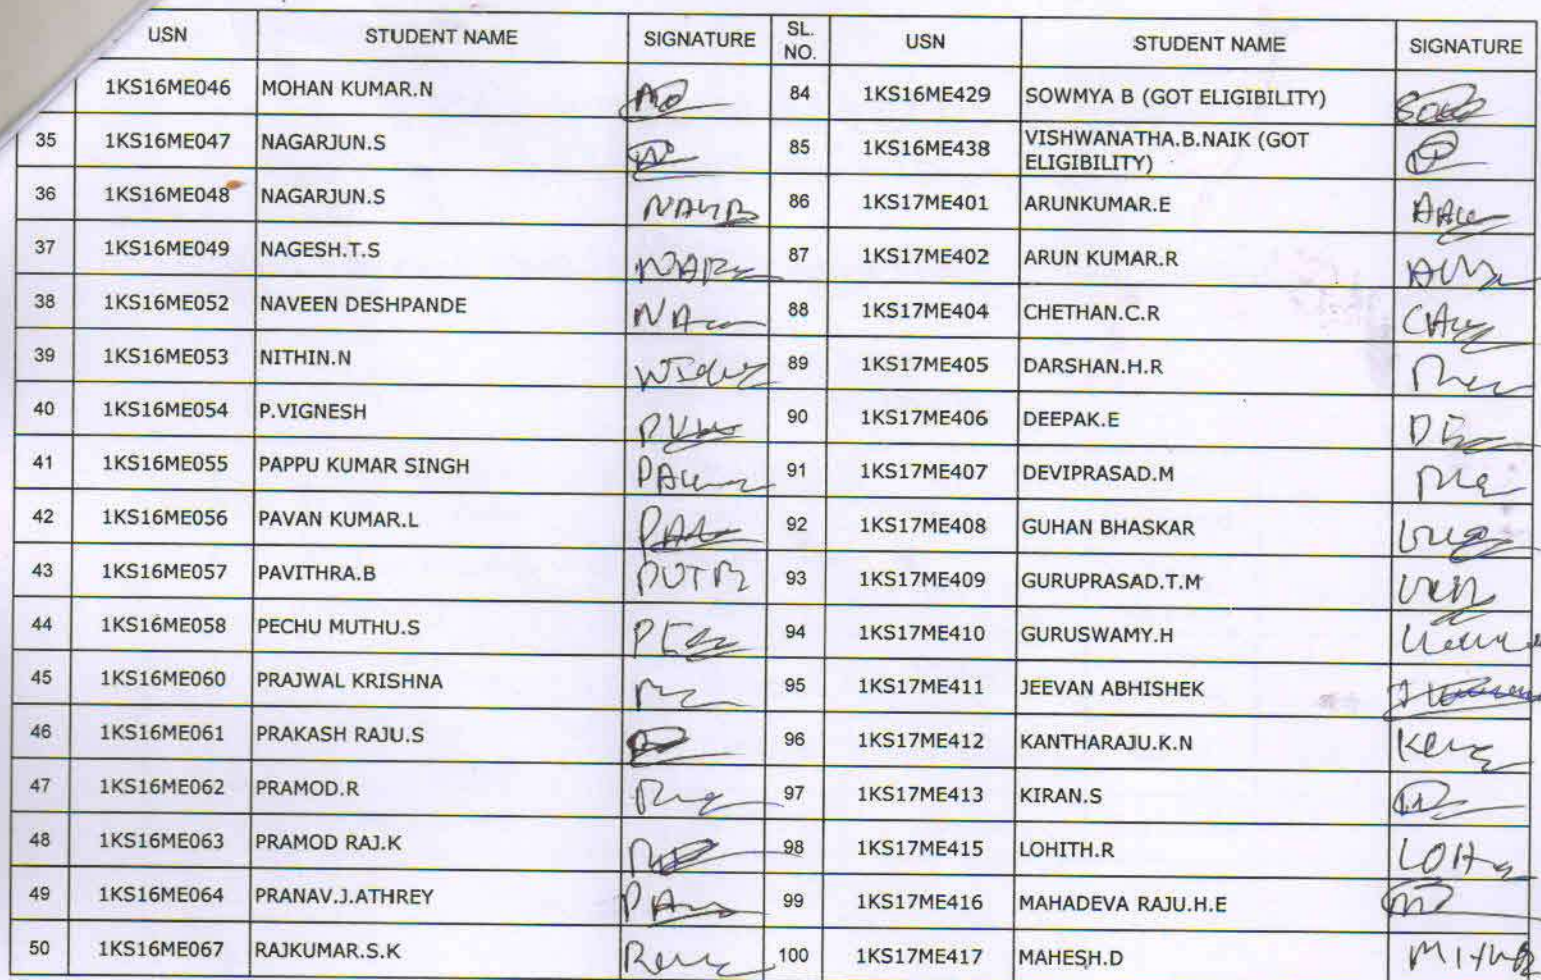 USN STUDENT NAME SIGNATURE SL. NO. USN STUDENT NAME SIGNATURE
1KS16ME046 MOHAN KUMAR.N 84 1KS16ME429 SOWMYA B (GOT ELIGIBILITY)
35 1KS16ME047 NAGARJUN.S 85 1KS16ME438 VISHWANATHA.B.NAIK (GOT ELIGIBILITY)
36 1KS16ME048 NAGARJUN.S 86 1KS17ME401 ARUNKUMAR.E
37 1KS16ME049 NAGESH.T.S 87 1KS17ME402 ARUN KUMAR.R
38 1KS16ME052 NAVEEN DESHPANDE 88 1KS17ME404 CHETHAN.C.R
39 1KS16ME053 NITHIN.N 89 1KS17ME405 DARSHAN.H.R
40 1KS16ME054 P.VIGNESH 90 1KS17ME406 DEEPAK.E
41 1KS16ME055 PAPPU KUMAR SINGH 91 1KS17ME407 DEVIPRASAD.M
42 1KS16ME056 PAVAN KUMAR.L 92 1KS17ME408 GUHAN BHASKAR
43 1KS16ME057 PAVITHRA.B 93 1KS17ME409 GURUPRASAD.T.M
44 1KS16ME058 PECHU MUTHU.S 94 1KS17ME410 GURUSWAMY.H
45 1KS16ME060 PRAJWAL KRISHNA 95 1KS17ME411 JEEVAN ABHISHEK
46 1KS16ME061 PRAKASH RAJU.S 96 1KS17ME412 KANTHARAJU.K.N
47 1KS16ME062 PRAMOD.R 97 1KS17ME413 KIRAN.S
48 1KS16ME063 PRAMOD RAJ.K 98 1KS17ME415 LOHITH.R
49 1KS16ME064 PRANAV.J.ATHREY 99 1KS17ME416 MAHADEVA RAJU.H.E
50 1KS16ME067 RAJKUMAR.S.K 100 1KS17ME417 MAHESH.D